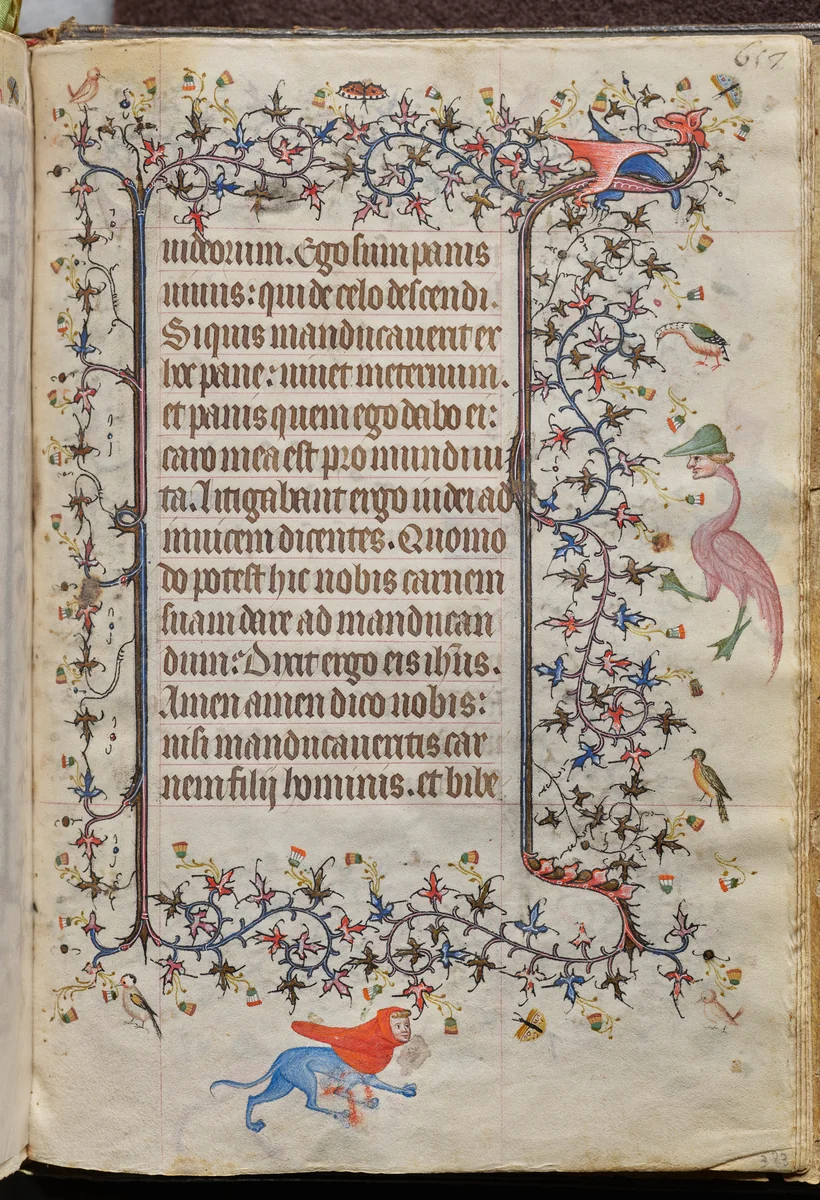 657
uideorum. Ego sum panis
uiuus: qui de celo descendi.
Siquis manducauerit ex
hoc pane: uiuet ineternum.
et panis quem ego dabo ei:
caro mea est pro mundi ui
ta. Litigabant ergo iudei ad
inuicem dicentes. Quomo
do potest hic nobis carnem
suam dare ad manducan
dum: Dixit ergo eis ihūs.
Amen amen dico uobis:
nisi manducaueritis car
nem filij hominis. et bibe
323